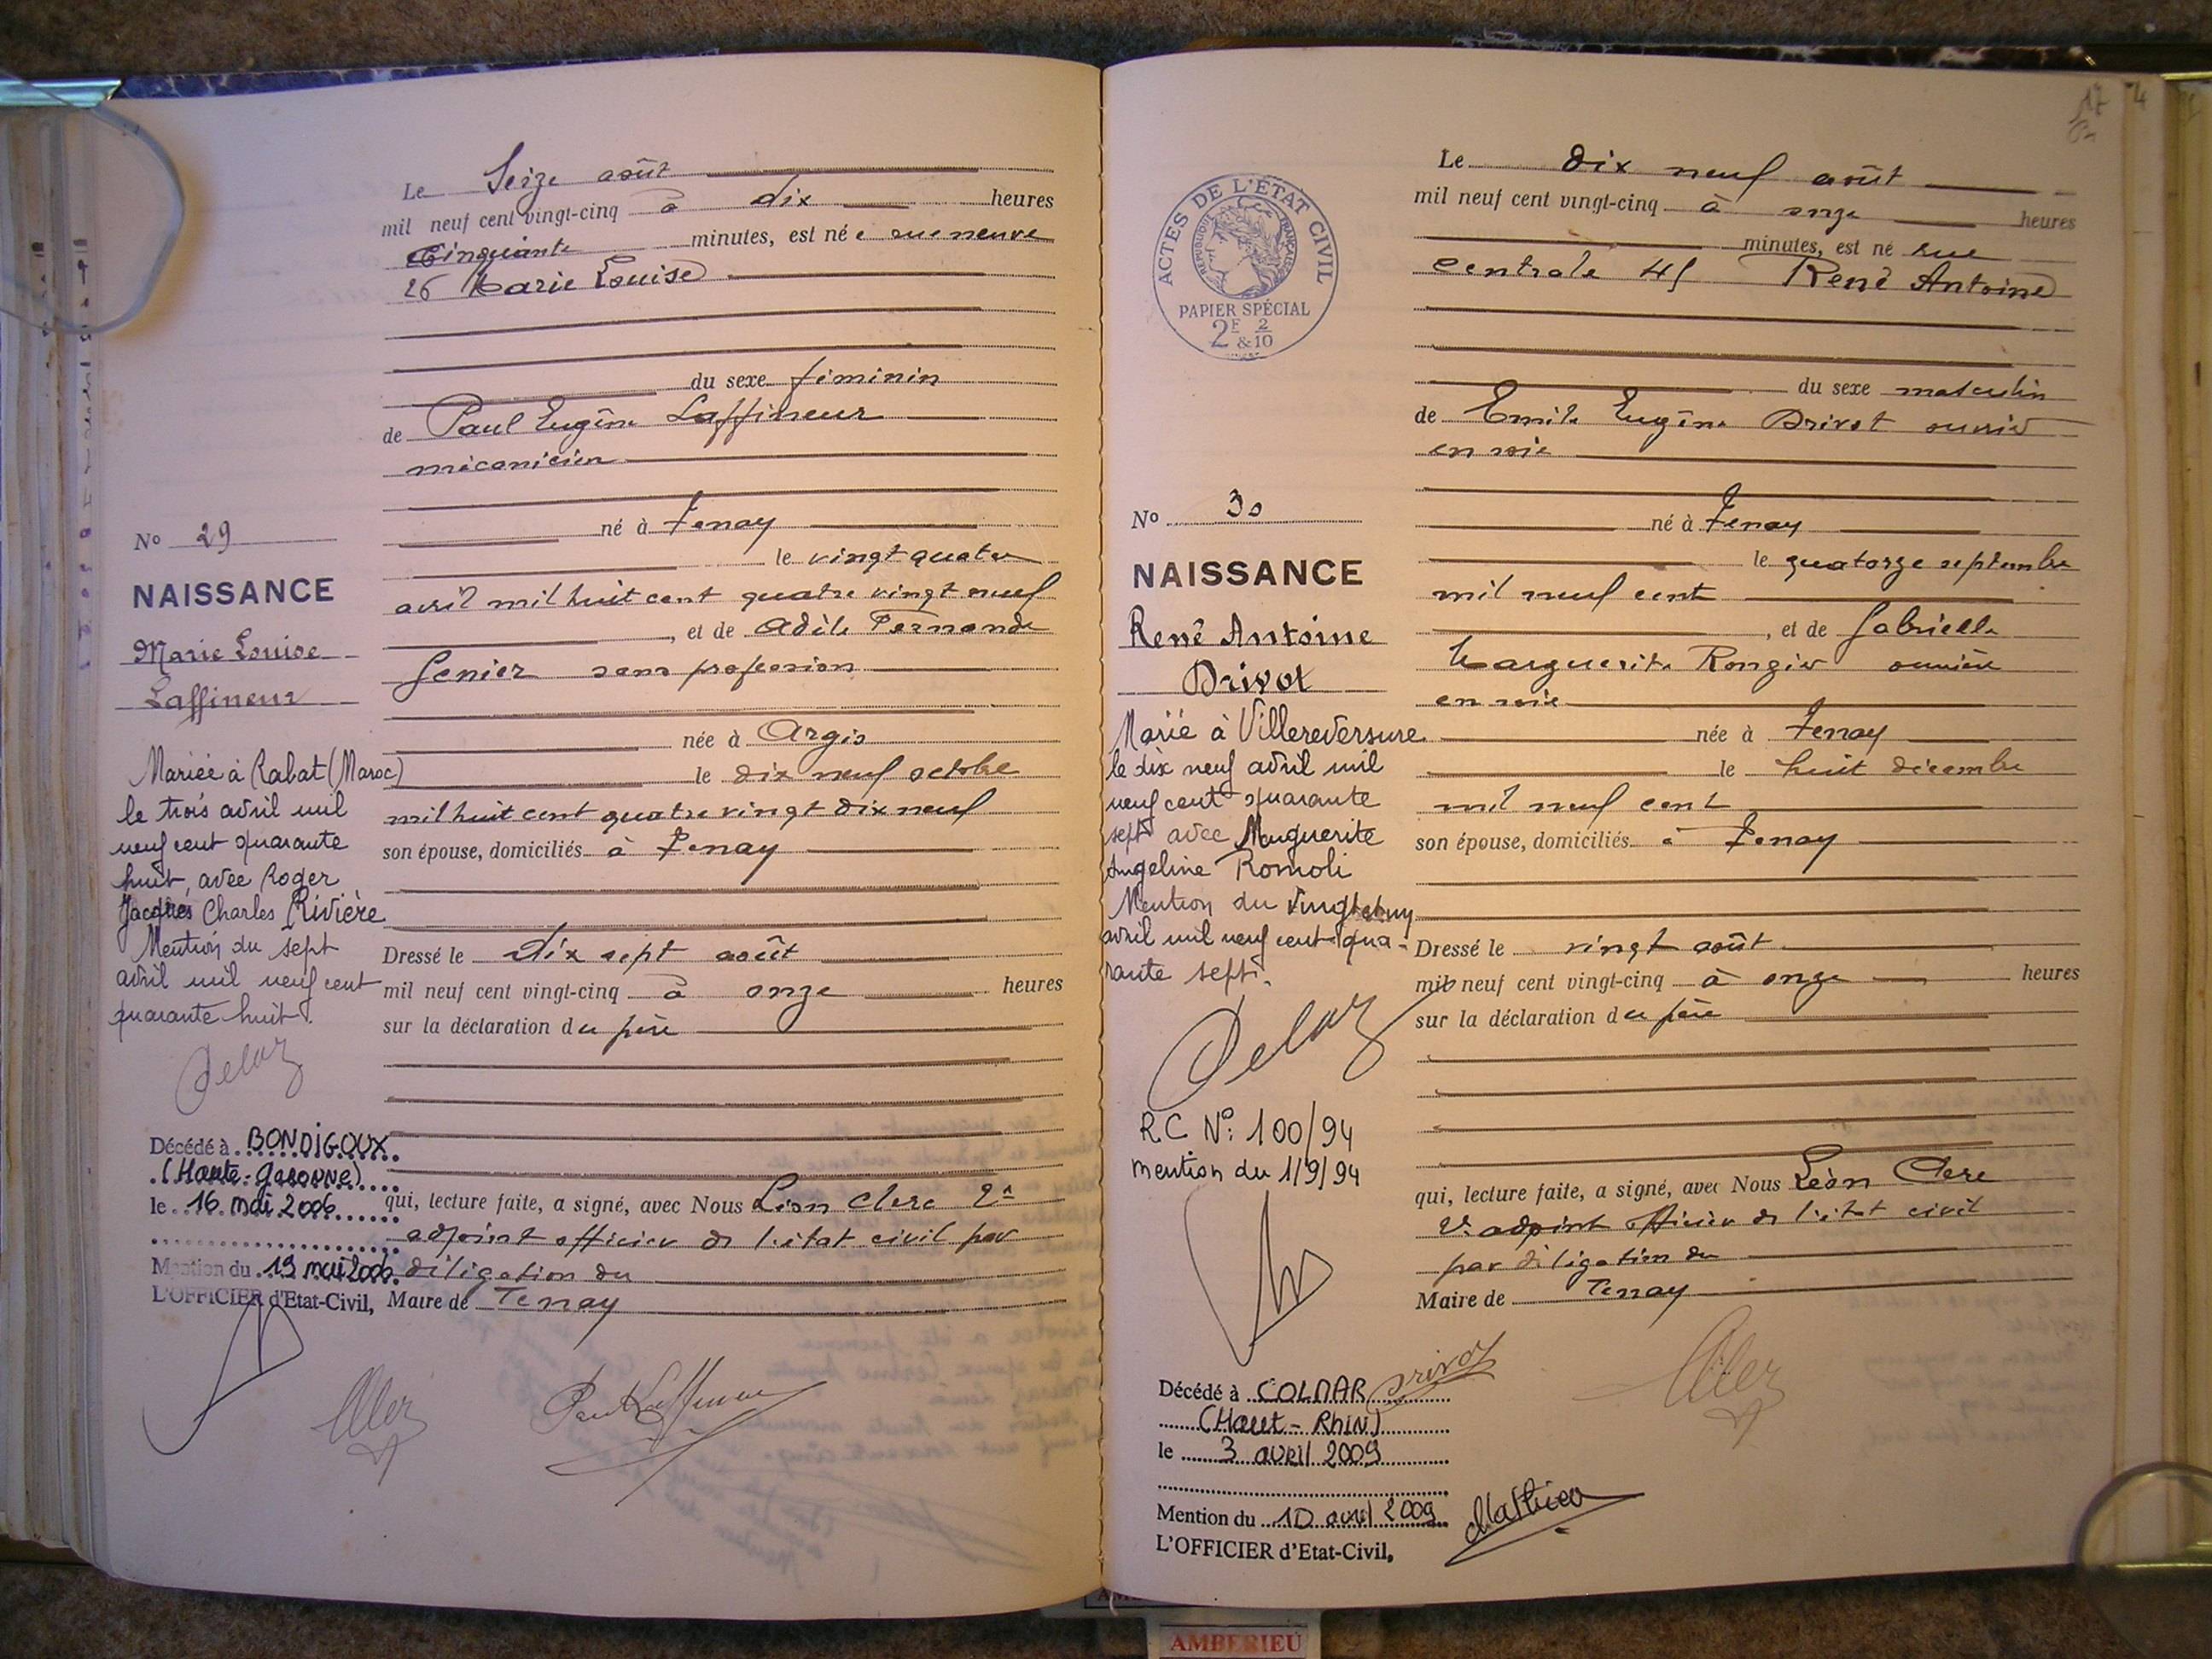 Le Seize août
mil neuf cent vingt-cinq à dix heures
Cinquante minutes, est née rue neuve
26 Marie Louise
du sexe féminin
de Paul Eugène Laffineur
mécanicien
né à Tenay
le vingt quatre
avril mil huit cent quatre vingt neuf
, et de Adèle Fernande
Genier sans profession
née à Argis
le dix neuf octobre
mil huit cent quatre vingt dix neuf
son épouse, domiciliés à Tenay
Dressé le dix sept août
mil neuf cent vingt-cinq à onze heures
sur la déclaration du père
qui, lecture faite, a signé, avec Nous Léon Clerc 2e
adjoint officier de l'état civil par
déligation du
Maire de Tenay
No 29
NAISSANCE
Marie Louise
Laffineur
Mariée à Rabat (Maroc)
le trois avril mil
neuf cent quarante
huit, avec Roger
Jacques Charles Rivière
Mention du sept
avril mil neuf cent
quarante huit.
Delaz
Décédé à BONDIGOUX
(Haute-Garonne)
le 16 mai 2006
Mention du 19 mai 2006
L'OFFICIER d'Etat-Civil,
Paul Laffineur
17 4
Le dix neuf août
mil neuf cent vingt-cinq à onze heures
minutes, est né rue
Centrale 45 René Antoine
du sexe masculin
de Emile Eugène Drivot ouvrier
en soie
né à Tenay
le quatorze septembre
mil neuf cent
, et de Gabrielle
Marguerite Rongier ouvrière
en soie
née à Tenay
le huit décembre
mil neuf cent
son épouse, domiciliés à Tenay
Dressé le vingt août
mil neuf cent vingt-cinq à onze heures
sur la déclaration du père
qui, lecture faite, a signé, avec Nous Léon Clerc
2e adjoint officier de l'état civil
par déligation du
Maire de Tenay
ACTES DE L'ÉTAT CIVIL
RÉPUBLIQUE FRANÇAISE
PAPIER SPÉCIAL
2F & 2/10
No 30
NAISSANCE
René Antoine
Drivot
Marié à Villereversure
le dix neuf avril mil
neuf cent quarante
sept avec Muguerite
Angeline Romoli
Mention du vingt
avril mil neuf cent qua-
rante sept.
Delaz
R.C. N°: 100/94
mention du 1/9/94
Drivot
Décédé à COLMAR
(Haut-RHIN)
le 3 avril 2009
Mention du 10 avril 2009
L'OFFICIER d'Etat-Civil,
Mathieu
AMBERIEU